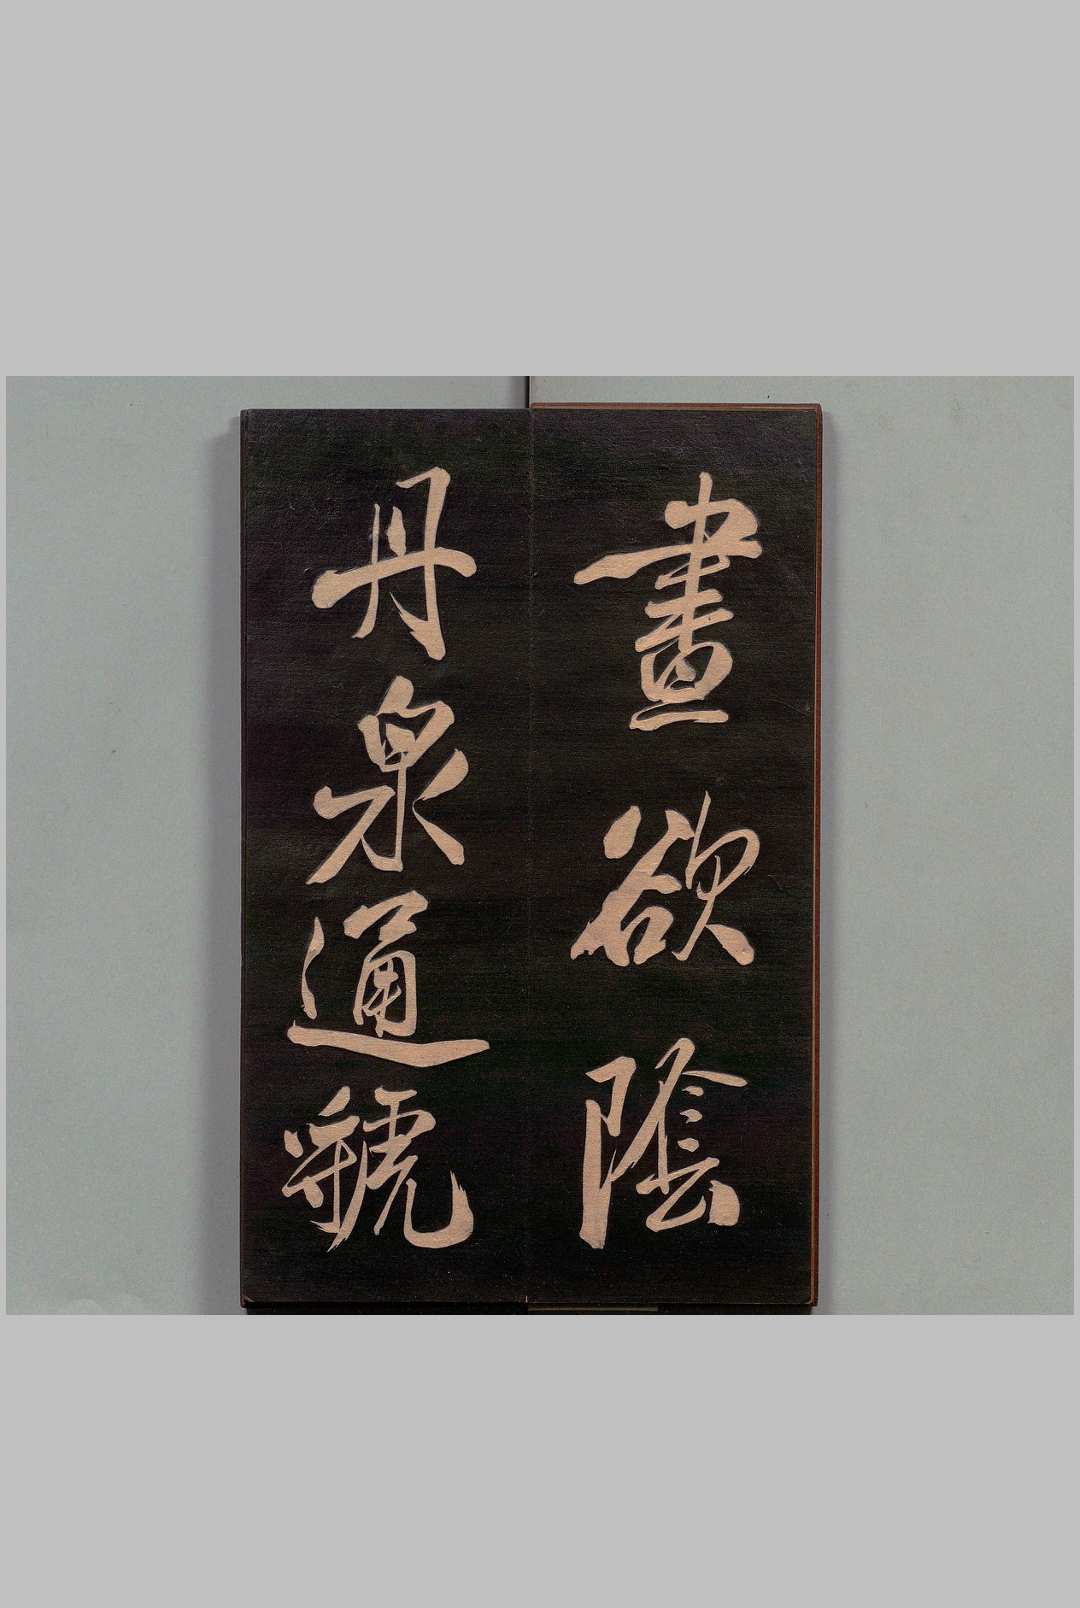 晝欲陰
丹泉通虢